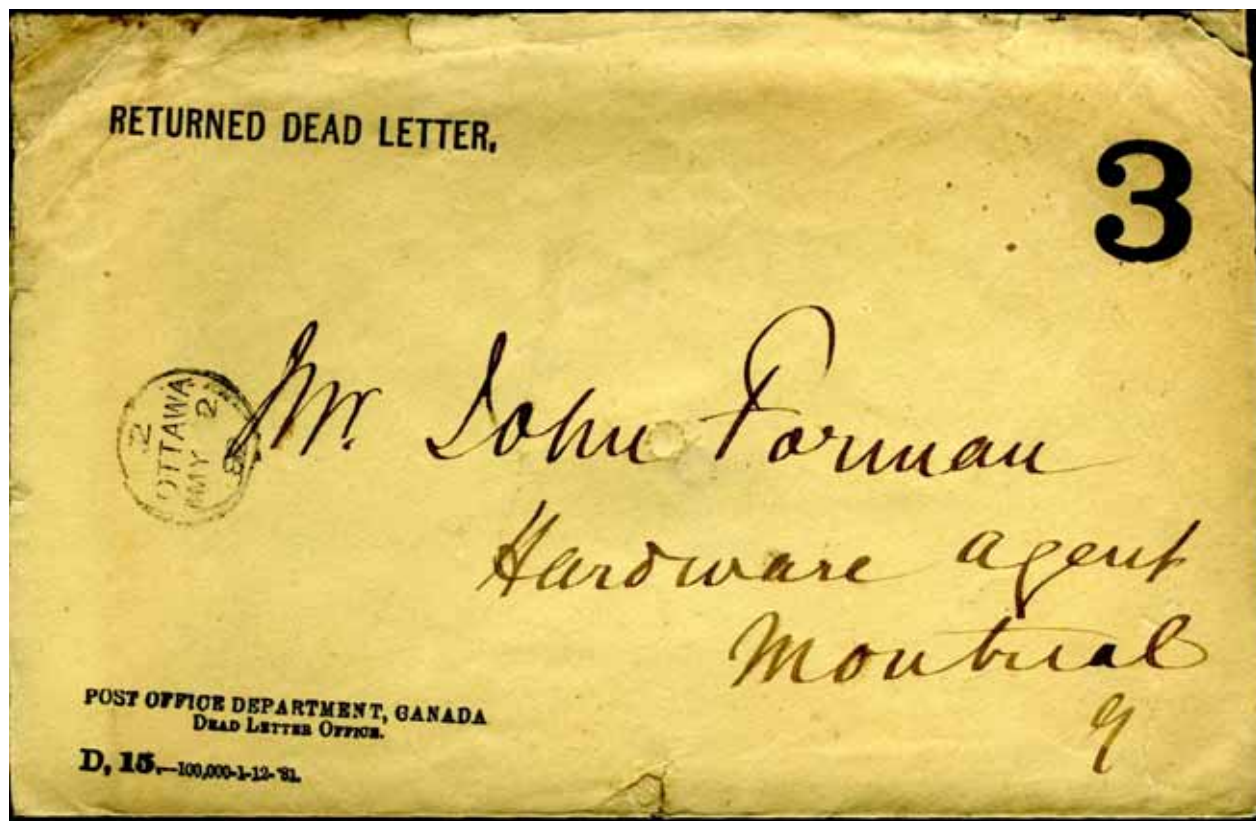 RETURNED DEAD LETTER,
3
2
OTTAWA
MY 2
Mr. John Forman
Hardware agent
Montreal
POST OFFICE DEPARTMENT, CANADA
DEAD LETTER OFFICE.
D, 15.—100,000-1-12-'81.